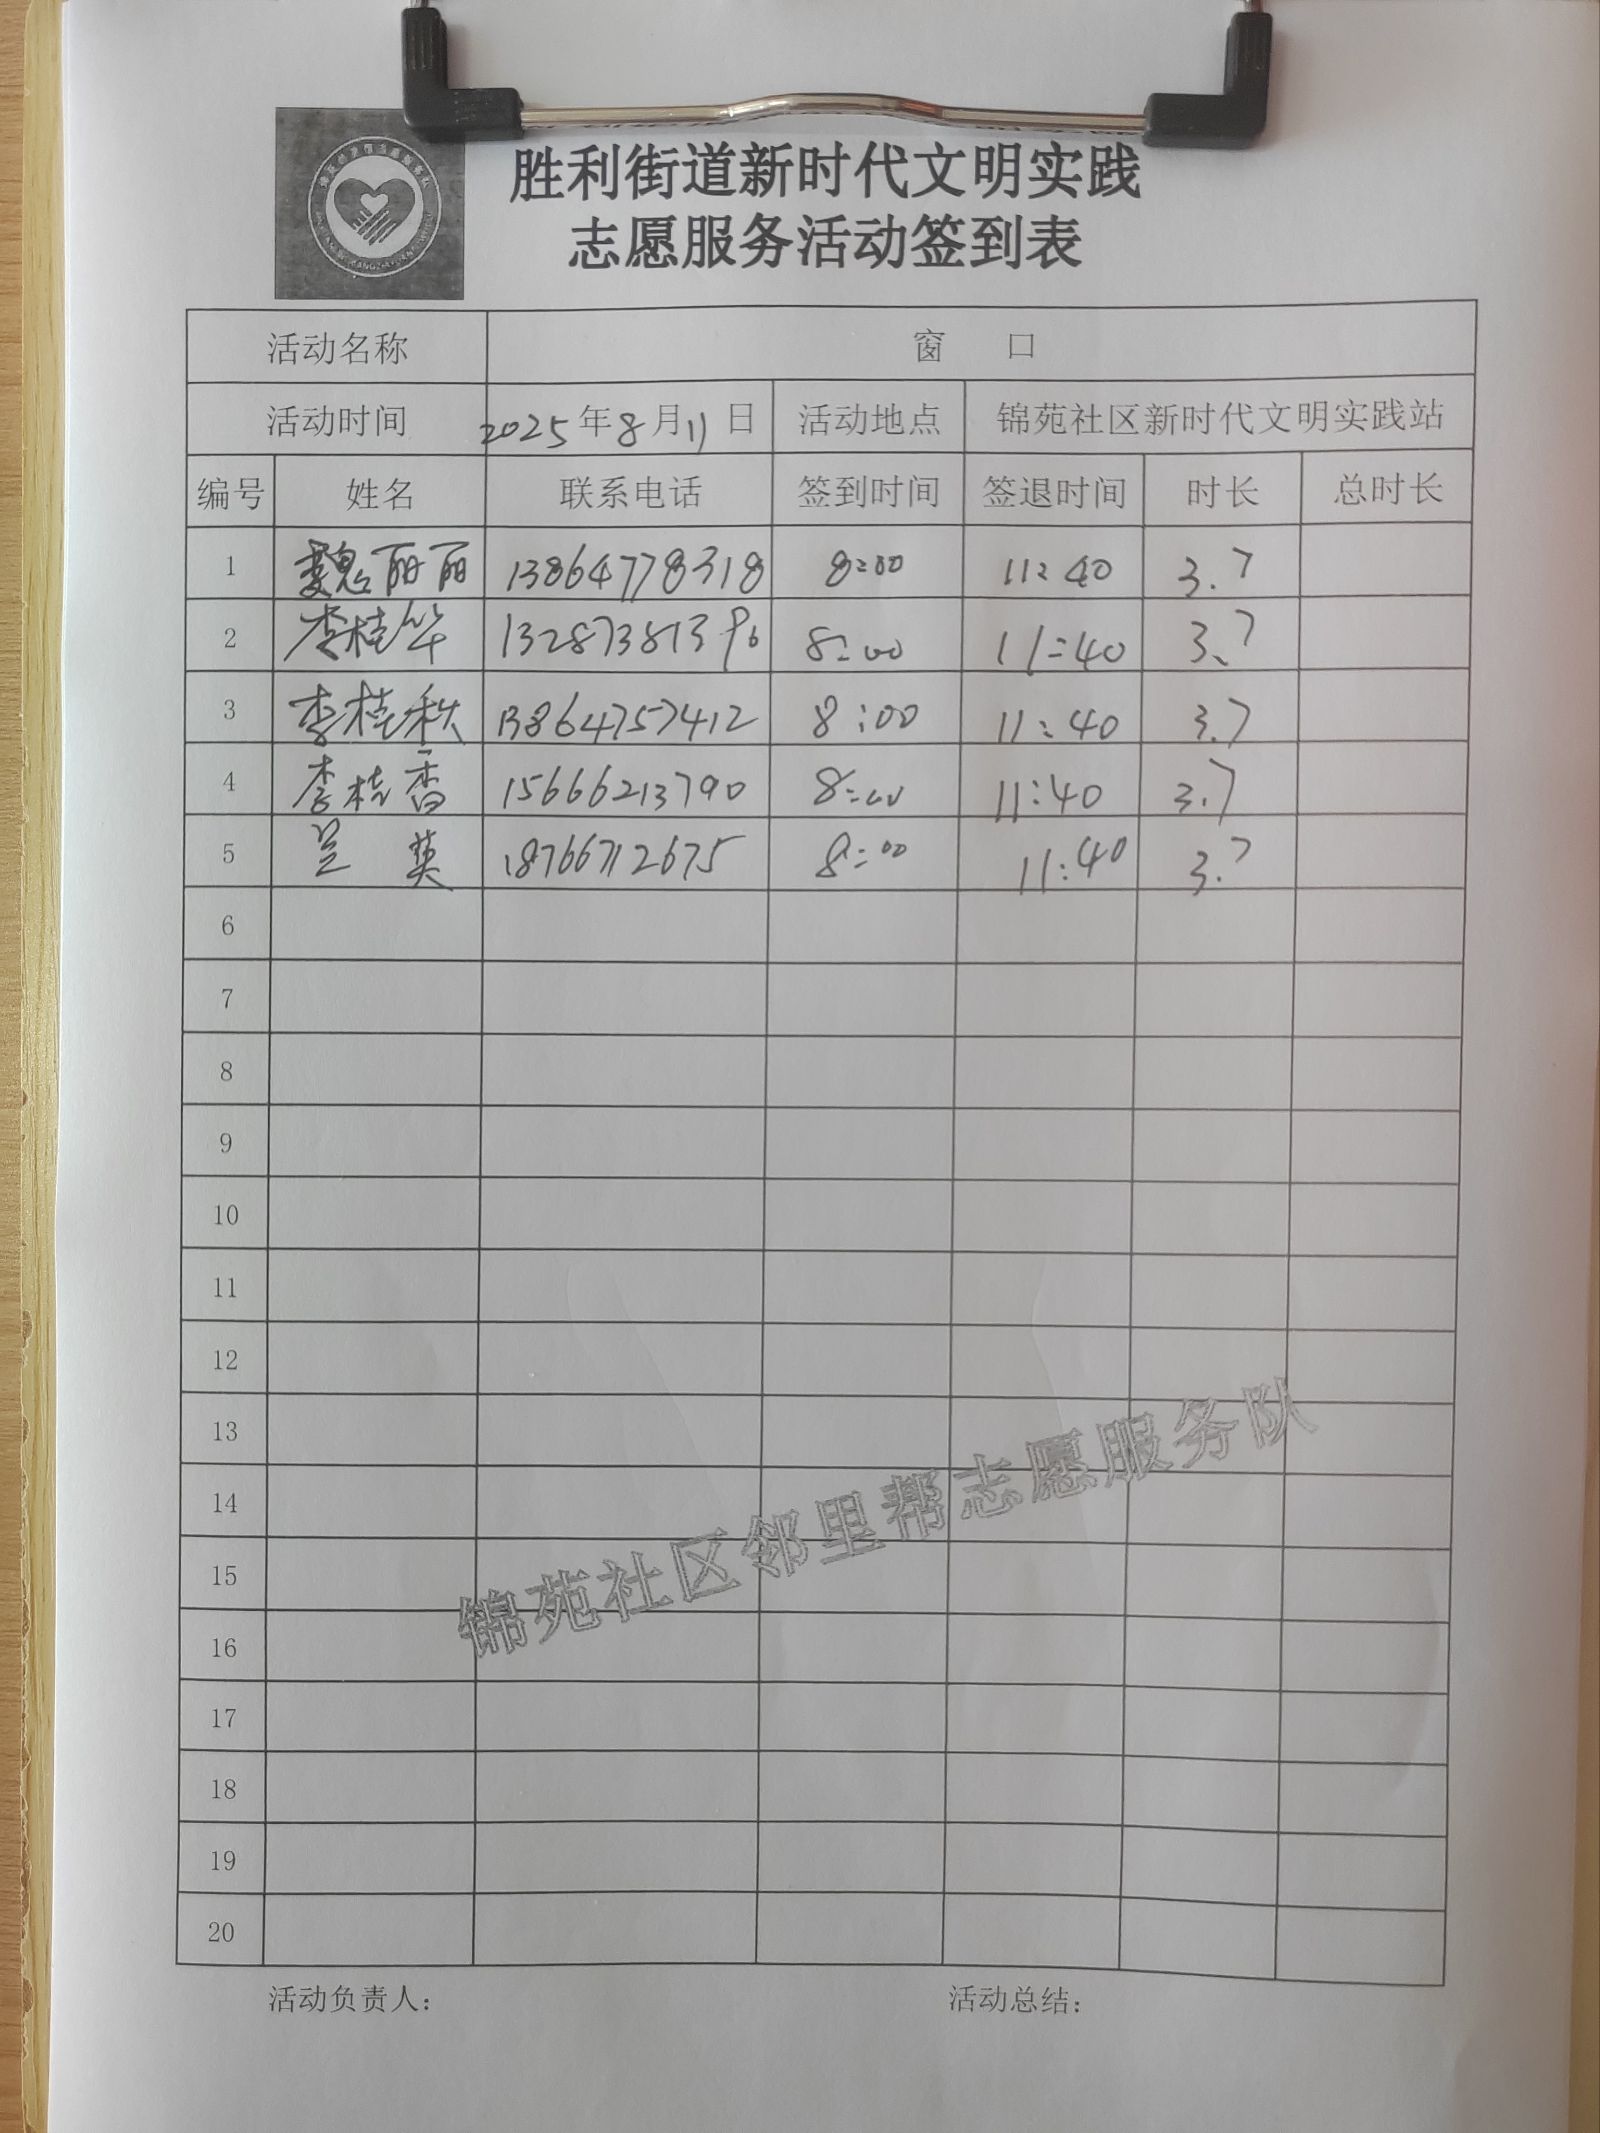 胜利街道新时代文明实践
志愿服务活动签到表
活动名称 窗 口
活动时间 2025年8月11日 活动地点 锦苑社区新时代文明实践站
编号 姓名 联系电话 签到时间 签退时间 时长 总时长
1 魏丽丽 13864778318 8:00 11:40 3.7
2 李桂华 13287381396 8:00 11:40 3.7
3 李桂秋 13864757412 8:00 11:40 3.7
4 李桂香 15666213790 8:00 11:40 3.7
5 兰英 18766712675 8:00 11:40 3.7
6
7
8
9
10
11
12
13
14
15
16
17
18
19
20
锦苑社区邻里帮志愿服务队
活动负责人： 活动总结：